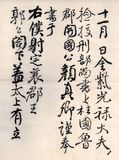 十一月日金紫光祿大夫
檢校刑部尚書上柱國魯
郡開國公顏真卿謹奉
書于
右僕射定襄郡王
郭公閣下蓋太上有立